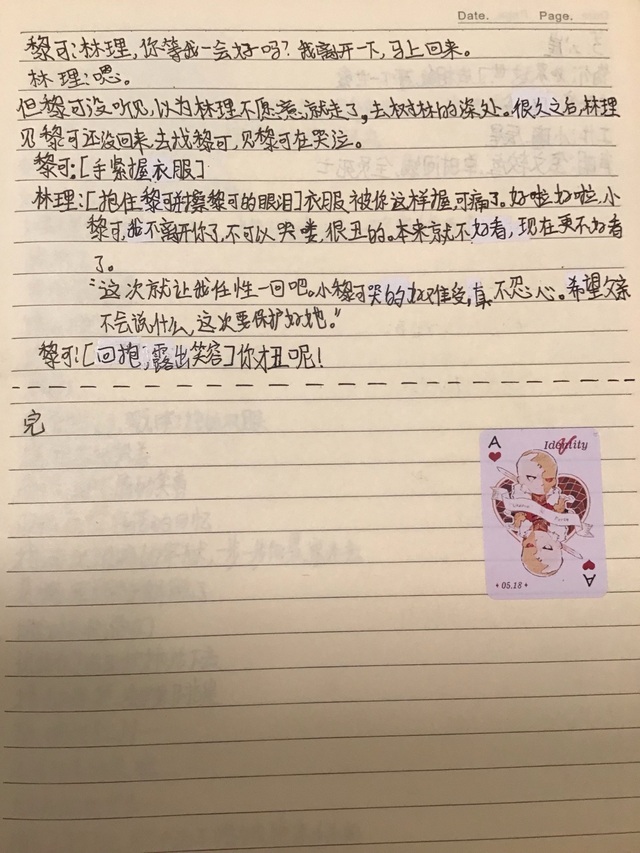 Date. Page.
黎可:林理,你等我一会好吗?我离开一下,马上回来。
林理:嗯。
但黎可没听见,以为林理不愿意,就走了。去树林的深处。很久之后,林理
见黎可还没回来,去找黎可,见黎可在哭泣。
黎可:[手紧握衣服]
林理:[抱住黎可并擦黎可的眼泪]衣服被你这样握,可痛了。好啦好啦,小
黎可,我不离开你了,不可以哭喽,很丑的。本来就不好看,现在更不好看
了。
“这次就让我任性一回吧。小黎可哭的好难受,真不忍心。希望父亲
不会说什么,这次要保护好她。”
黎可:[回抱,露出笑容]你才丑呢!
完
A
Identity V
·05.18·
A